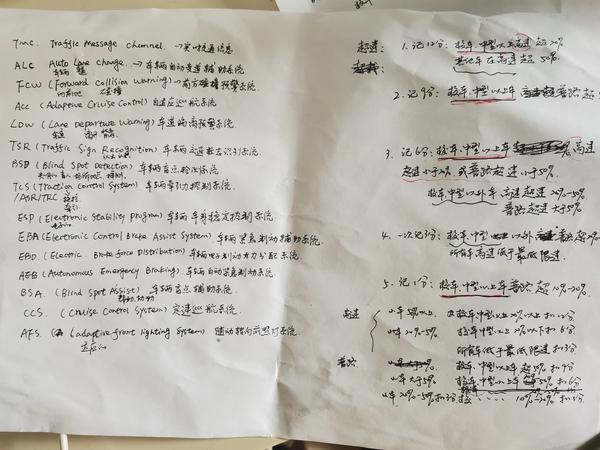 TMC. Traffic Message Channel. → 实时交通信息
ALC Auto Lane Change. → 车辆自动变道辅助系统
车辆 变
FCW (Forward Collision Warning) → 前方碰撞预警系统
Acc (Adaptive Cruise Control) 自适应巡航系统
LDW (Lane Departure Warning) 车道偏离预警系统
车道 偏离 警告
TSR (Traffic Sign Recognition) 车辆交通标志识别系统
BSD (Blind Spot Detection) 车辆盲点检测系统
TCS (Traction Control System) 车辆牵引力控制系统
/ASR/TRC
ESP (Electronic Stability Program) 车辆车身稳定控制系统
EBA (Electronic Control Brake Assist System) 车辆紧急制动辅助系统
EBD (Electric Brakeforce Distribution) 车辆电子制动力分配系统
AEB (Autonomous Emergency Braking) 车辆自动紧急制动系统
BSA. (Blind Spot Assist) 车辆盲点辅助系统
CCS. (Cruise Control System) 定速巡航系统
AFS. (adaptive front lighting System) 随动转向前照灯系统
自适应
超速: 1. 记12分: 校车、中型以上高速超20%
其他车在高速超50%.
2. 记9分: 校车、中型以上 普路超
3. 记6分: 校车、中型以上车 高速
超速小于20% 或普路超速小于50%.
校车、中型以外车 高速超速20%-50%
普路超速大于50%
4. 一次记3分: 校车、中型以外
所有车高速低于最低限速.
5. 记1分: 校车、中型以上车普路超10%-20%
高速 小车50%以上
小车20%-50% 校车、中型以上20%以下扣6分
所有车低于最低限速扣3分
普路 校车、中型以上车超50%扣9分
小车大于50% 校车、中型以上车
小车20%-50%扣3分 10%-20%扣1分